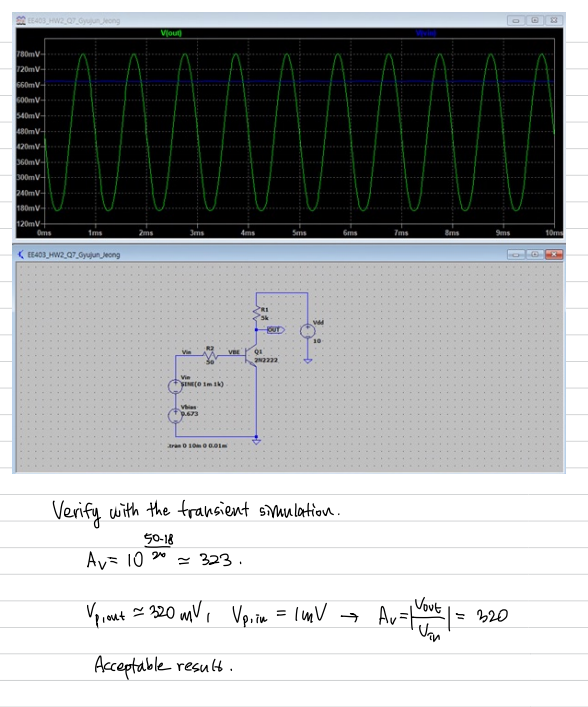 EE403_HW2_Q7_Gyujun_Jeong
V(out)
780mV
720mV
660mV
600mV
540mV
480mV
420mV
360mV
300mV
240mV
180mV
120mV
0ms 1ms 2ms 3ms 4ms 5ms 6ms 7ms 8ms 9ms 10ms
EE403_HW2_Q7_Gyujun_Jeong
R1
5k
OUT
Vdd
10
Vin
R2
50
VBE
Q1
2N2222
Vin
SINE(0 1m 1k)
Vbias
0.673
.tran 0 10m 0 0.01m
Verify with the transient simulation.
Av = 10^(50.18/20) ≃ 323.
Vp,out ≃ 320 mV, Vp,in = 1mV → Av = |Vout/Vin| = 320
Acceptable result.